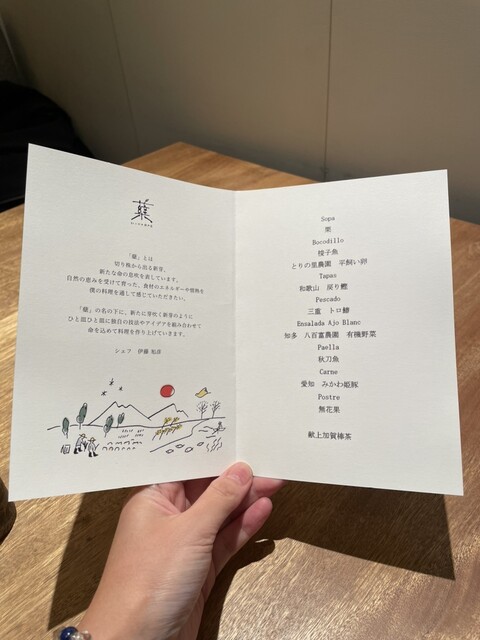 蘖
「蘖」とは
切り株から出る新芽。
新たな命の息吹を表しています。
自然の恵みを受けて育った、食材のエネルギーや情熱を
僕の料理を通して感じていただきたい。
「蘖」の名の下に、新たに芽吹く新芽のように
ひと皿ひと皿に独自の技法やアイデアを組み合わせて
命を込めて料理を作り上げていきます。
シェフ 伊藤
Sopa
栗
Bocodillo
梭子魚
とりの里農園 平飼い卵
Tapas
和歌山 戻り鰹
Pescado
三重 トロ鰆
Ensalada Ajo Blanc
知多 八百富農園 有機野菜
Paella
秋刀魚
Carne
愛知 みかわ姫豚
Postre
無花果
献上加賀棒茶